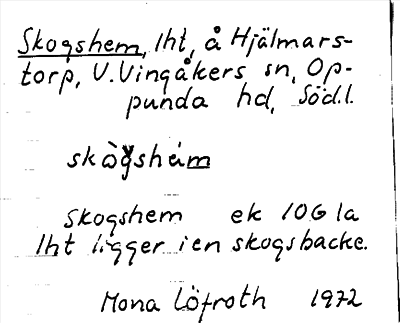 Skogshem, lht, å Hjälmars-
torp, V.Vingåkers sn, Op-
punda hd, Södl.
skògshém
Skogshem ek 10G 1a
lht ligger i en skogsbacke.
Mona Löfroth 1972